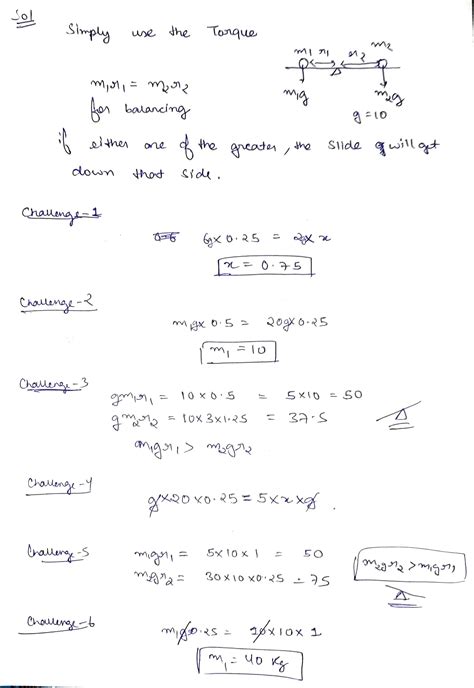 Sol
Simply use the Torque
m₁ r₁ r₂ m₂
m₁g m₂g
m₁r₁ = m₂r₂
for balancing
g = 10
if either one of the greater, the slide will get
down that side.
Challenge-1
6g×0.25 = 2g×x
x = 0.75
Challenge-2
m₁g×0.5 = 20g×0.25
m₁ = 10
Challenge-3
gm₁r₁ = 10×0.5 = 5×10 = 50
gm₂r₂ = 10×3×1.25 = 37.5
m₁gr₁ > m₂gr₂
Challenge-4
g×20×0.25 = 5×x×g.
Challenge-5
m₁gr₁ = 5×10×1 = 50
m₂gr₂ = 30×10×0.25 = 75
m₂gr₂ > m₁gr₁
Challenge-6
m₁g0.25 = 10×10×1
m₁ = 40 kg